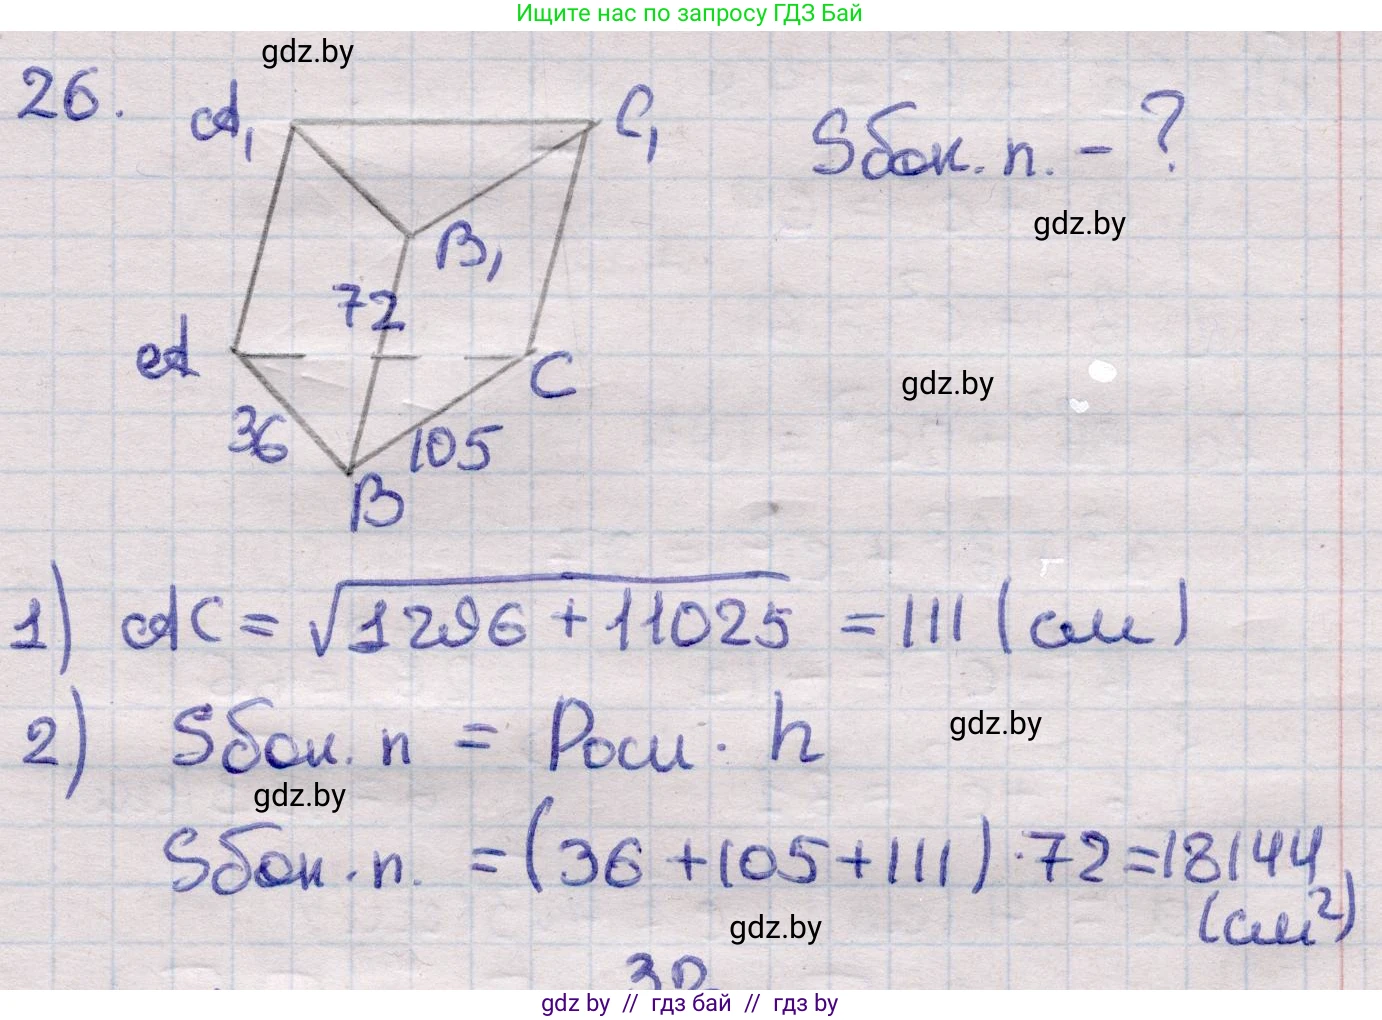 Ищите нас по запросу ГДЗ Бай
gdz.by
26.
A₁
C₁
Sбок. п. - ?
gdz.by
B₁
72
A
C
gdz.by
36
105
B
1) AC = √1296 + 11025 = 111 (см)
2) Sбок. п = Росн · h
gdz.by
gdz.by
Sбок. п. = (36 + 105 + 111) · 72 = 18144
(см²)
gdz.by
gdz by // гдз бай // гдз by